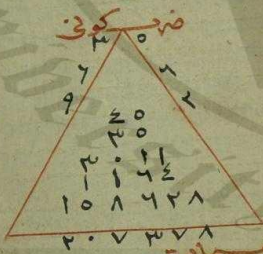 ضرب كونى
٣ ٥
٦ ٦
٩ ٢
٤ ٥
٣ ٥
٣ ٠ ١ ١
١ ١ ٦ ٤
١ ٥ ٨ ٦ ٢ ٨
٢ ٠ ٧ ٣ ٧ ٨